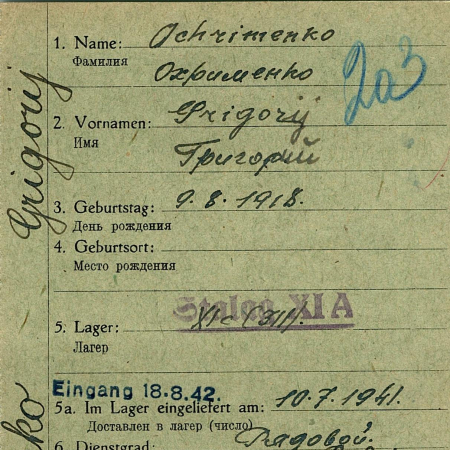 1. Name: Ochrimenko
Фамилия
Охрименко
2. Vornamen: Grigorij
Имя
Григорий
3. Geburtstag: 9. 8. 1918.
День рождения
4. Geburtsort:
Место рождения
Stalag XI A
5. Lager: XI c (311).
Лагер
Eingang 18.8.42.
5a. Im Lager eingeliefert am: 10.7.1941.
Доставлен в лагер (число)
6. Dienstgrad: Рядовой.
Grigorij
ko